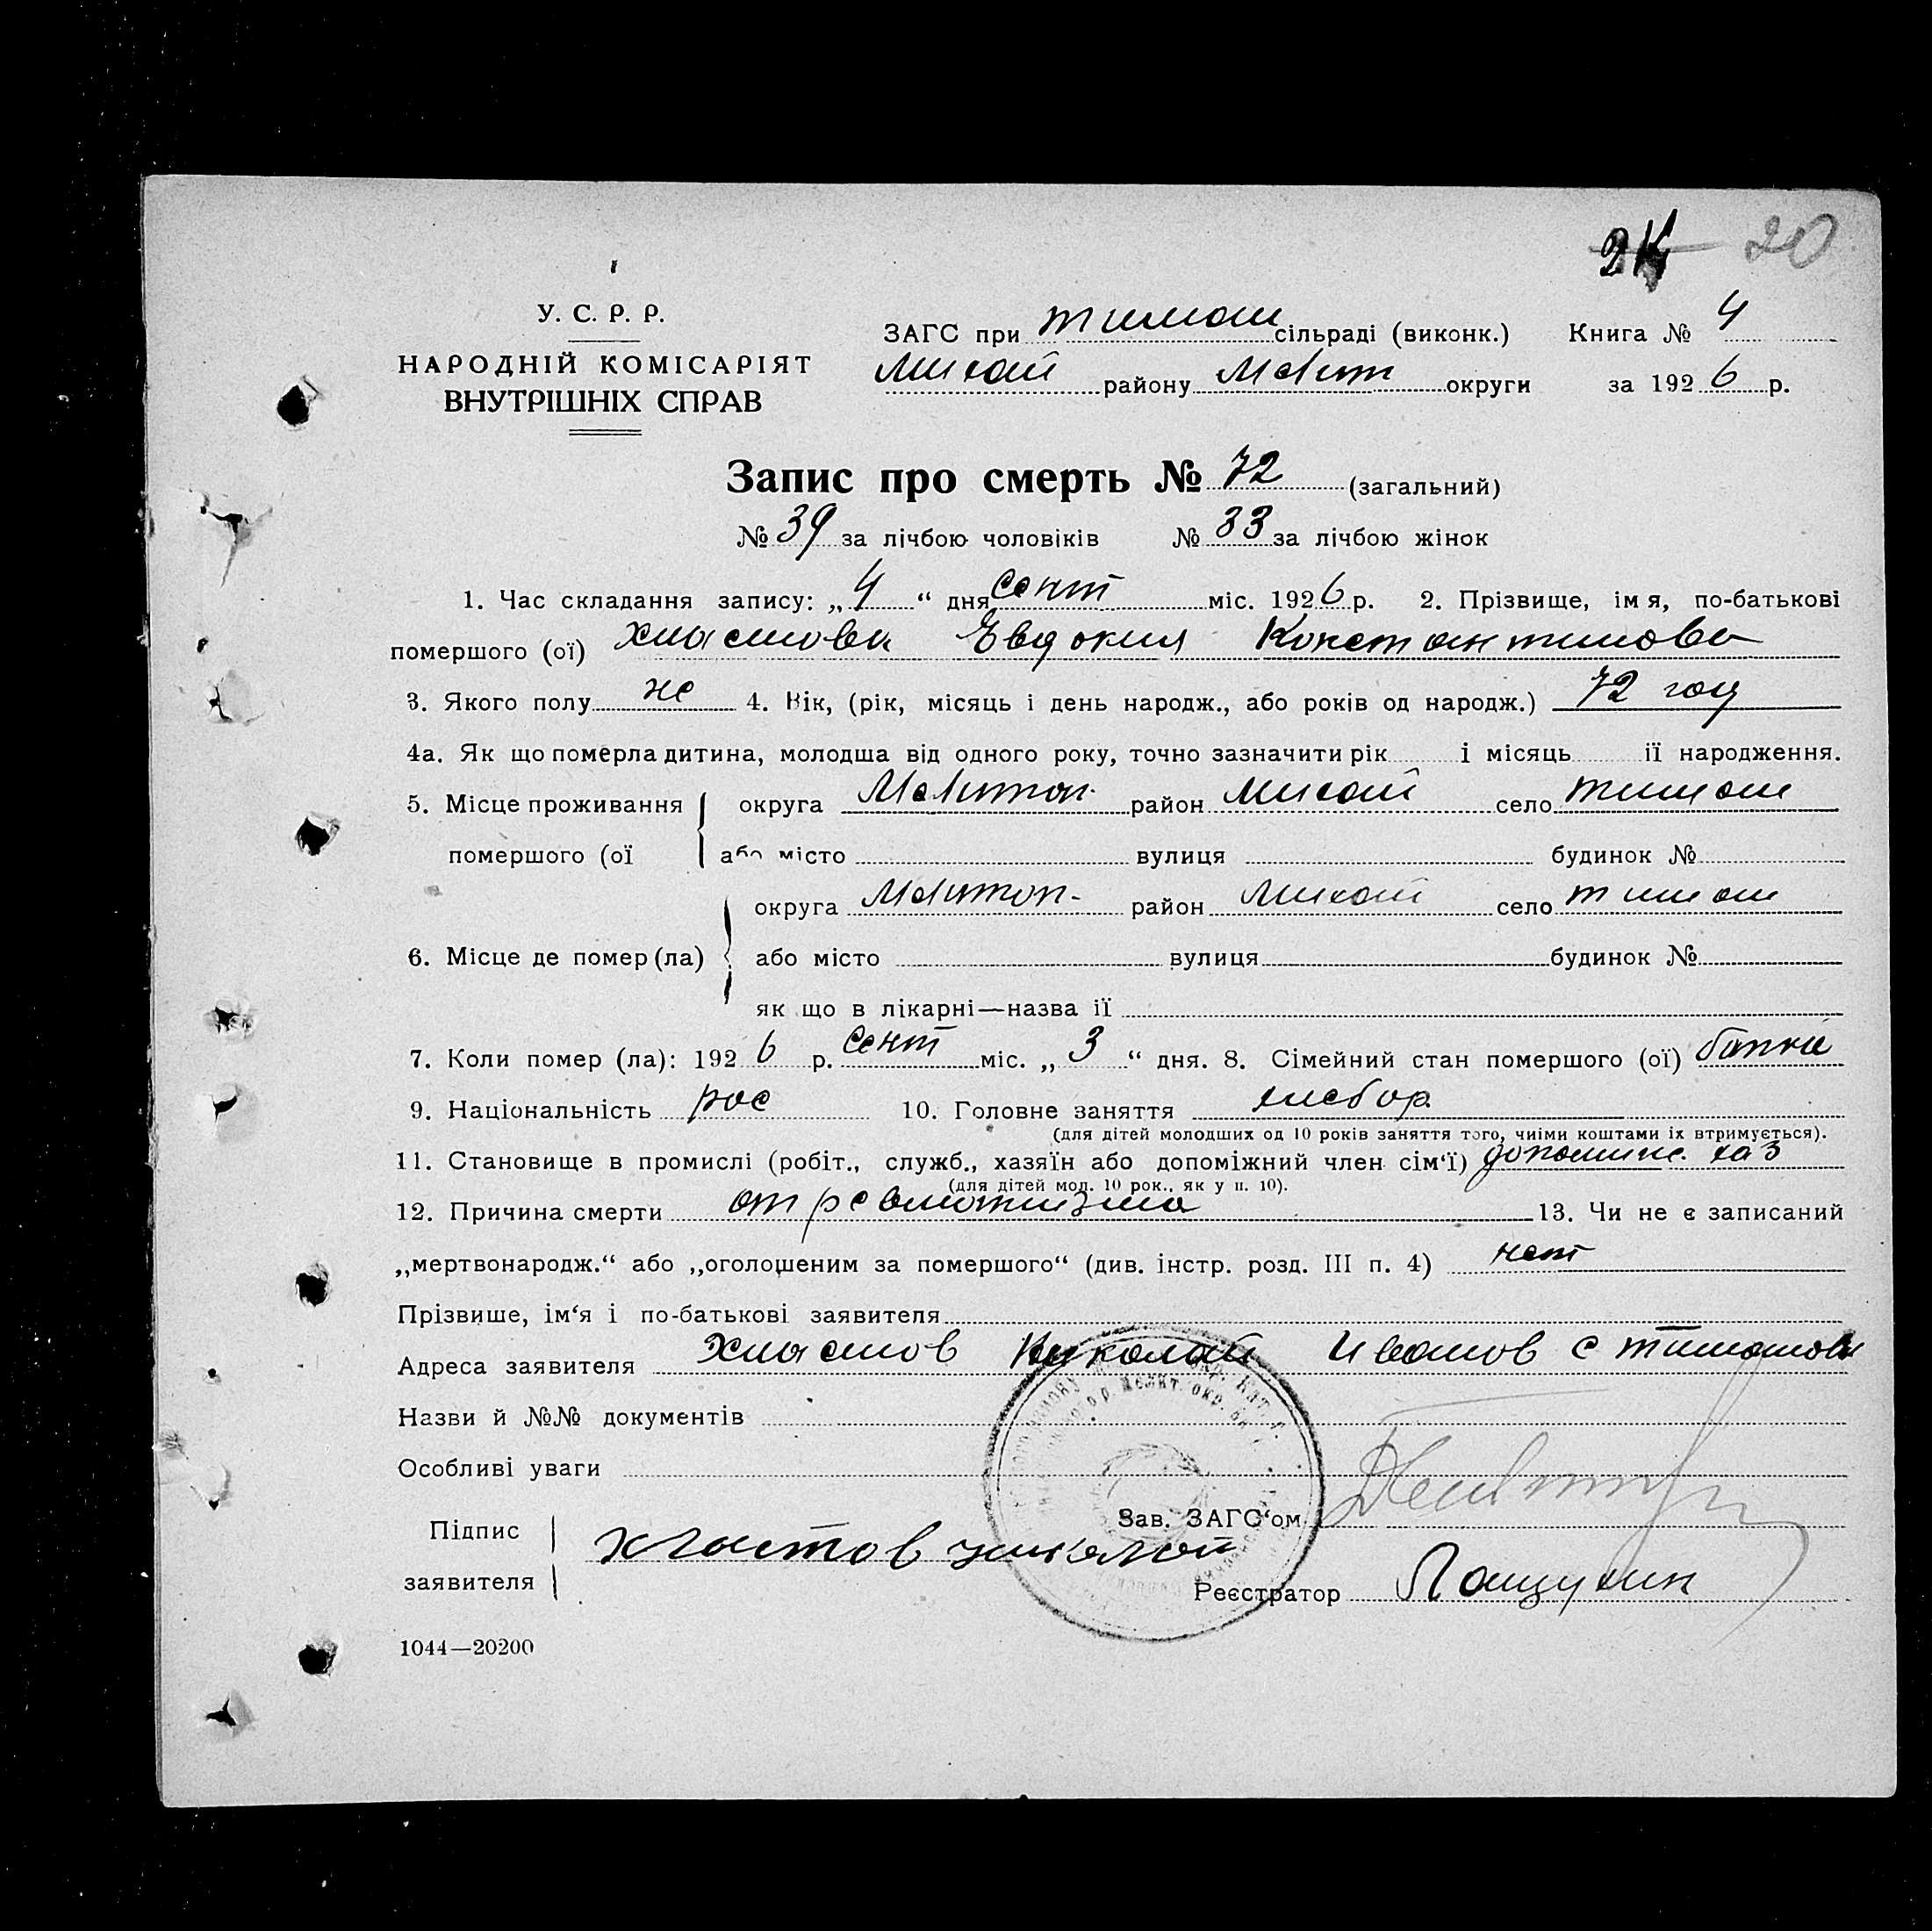 24 20
У. С. Р. Р.
НАРОДНІЙ КОМІСАРІЯТ
ВНУТРІШНІХ СПРАВ
ЗАГС при тимош сільраді (виконк.) Книга № 4
Михай району Мелит округи за 1926 р.
Запис про смерть № 72 (загальний)
№ 39 за лічбою чоловіків № 33 за лічбою жінок
1. Час складання запису: „4“ дня сент міс. 1926 р. 2. Прізвище, ім я, по-батькові
помершого (ої) Евдокия Константинова
3. Якого полу же 4. Вік, (рік, місяць і день народж., або років од народж.) 72 год
4а. Як що померла дитина, молодша від одного року, точно зазначити рік і місяць її народження.
5. Місце проживання округа Мелитоп. район Михай село тимош
помершого (ої або місто вулиця будинок №
округа Мелитоп. район Михай село тимош
6. Місце де помер (ла) або місто вулиця будинок №
як що в лікарні—назва її
7. Коли помер (ла): 1926 р. сент міс. „3“ дня. 8. Сімейний стан помершого (ої)
9. Національність рос 10. Головне заняття хлебор
(для дітей молодших од 10 років заняття того, чиїми коштами їх втримується).
11. Становище в промислі (робіт., служб., хазяїн або допоміжний член сім‘ї) хаз
(для дітей мол. 10 рок., як у п. 10).
12. Причина смерти от ревматизма 13. Чи не є записаний
„мертвонародж.“ або „оголошеним за помершого“ (див. інстр. розд. III п. 4) нет
Прізвище, ім‘я і по-батькові заявителя
Адреса заявителя Николай Иванов с тимошовк
Назви й №№ документів
Особливі уваги
Зав. ЗАГС‘ом
Підпис
заявителя Хластов николай
Реєстратор
1044—20200